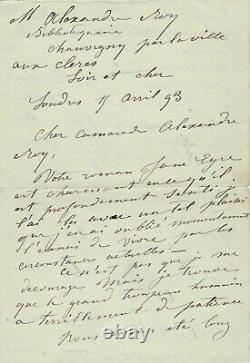 M Alexandre Roy
Bibliothécaire
Chauvigny par la ville
aux clercs
Loir et cher
Londres 5 avril 93
Cher camarade Alexandre
Roy,
Votre roman Jane Eyre
est charmant en ce qu'il
est profondement senti, je
l'ai lu avec un tel plaisir
que j'en ai oublié momentanément
l'ennui de vivre par les
circonstances actuelles.
Ce n'est pas que je me
décourage mais je trouve
que le grand troupeau humain
a terriblement de patience
Nous été long
© 123RTH.com